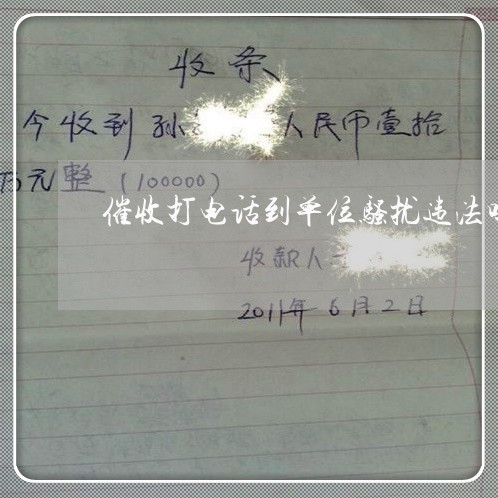 收条
今收到孙 人民币壹拾
万元整 (100000)
催收打电话到单位骚扰违法
收款人
2011年6月2日